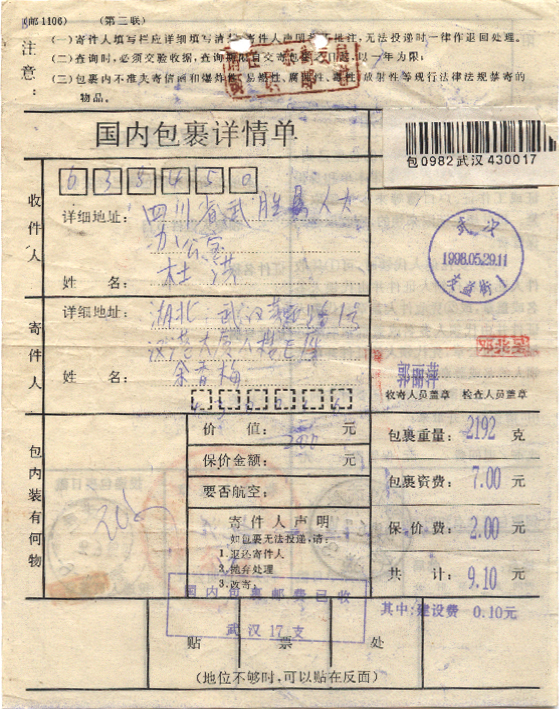 (邮1106) (第二联)
注意:
(一)寄件人填写栏应详细填写清楚,寄件人声明 批注,无法投递时一律作退回处理。
(二)查询时,必须交验收据,查询期限自交寄 起,以一年为限;
(三)包裹内不准夹寄信函和爆炸性、易燃性、腐蚀性、毒性、放射性等现行法律法规禁寄的
物品。
国内包裹详情单
包0982武汉430017
收件人
638450
详细地址:四川省武胜县人大
办公室
姓名:杜洪
武汉
1998.05.29.11
友益街1
寄件人
详细地址:湖北 武汉 1号
姓名:余香梅
邓兆莹
郭丽萍
收寄人员盖章 检查人员盖章
包内装有何物
价值: 元
保价金额: 元
要否航空:
包裹重量: 2192 克
包裹资费: 7.00 元
保价费: 2.00 元
共计: 9.10 元
其中:建设费 0.10元
寄件人声明
如包裹无法投递,请:
1.退还寄件人
2.抛弃处理
3.改寄:
国内包裹邮费已收
武汉17支
贴票处
(地位不够时,可以贴在反面)